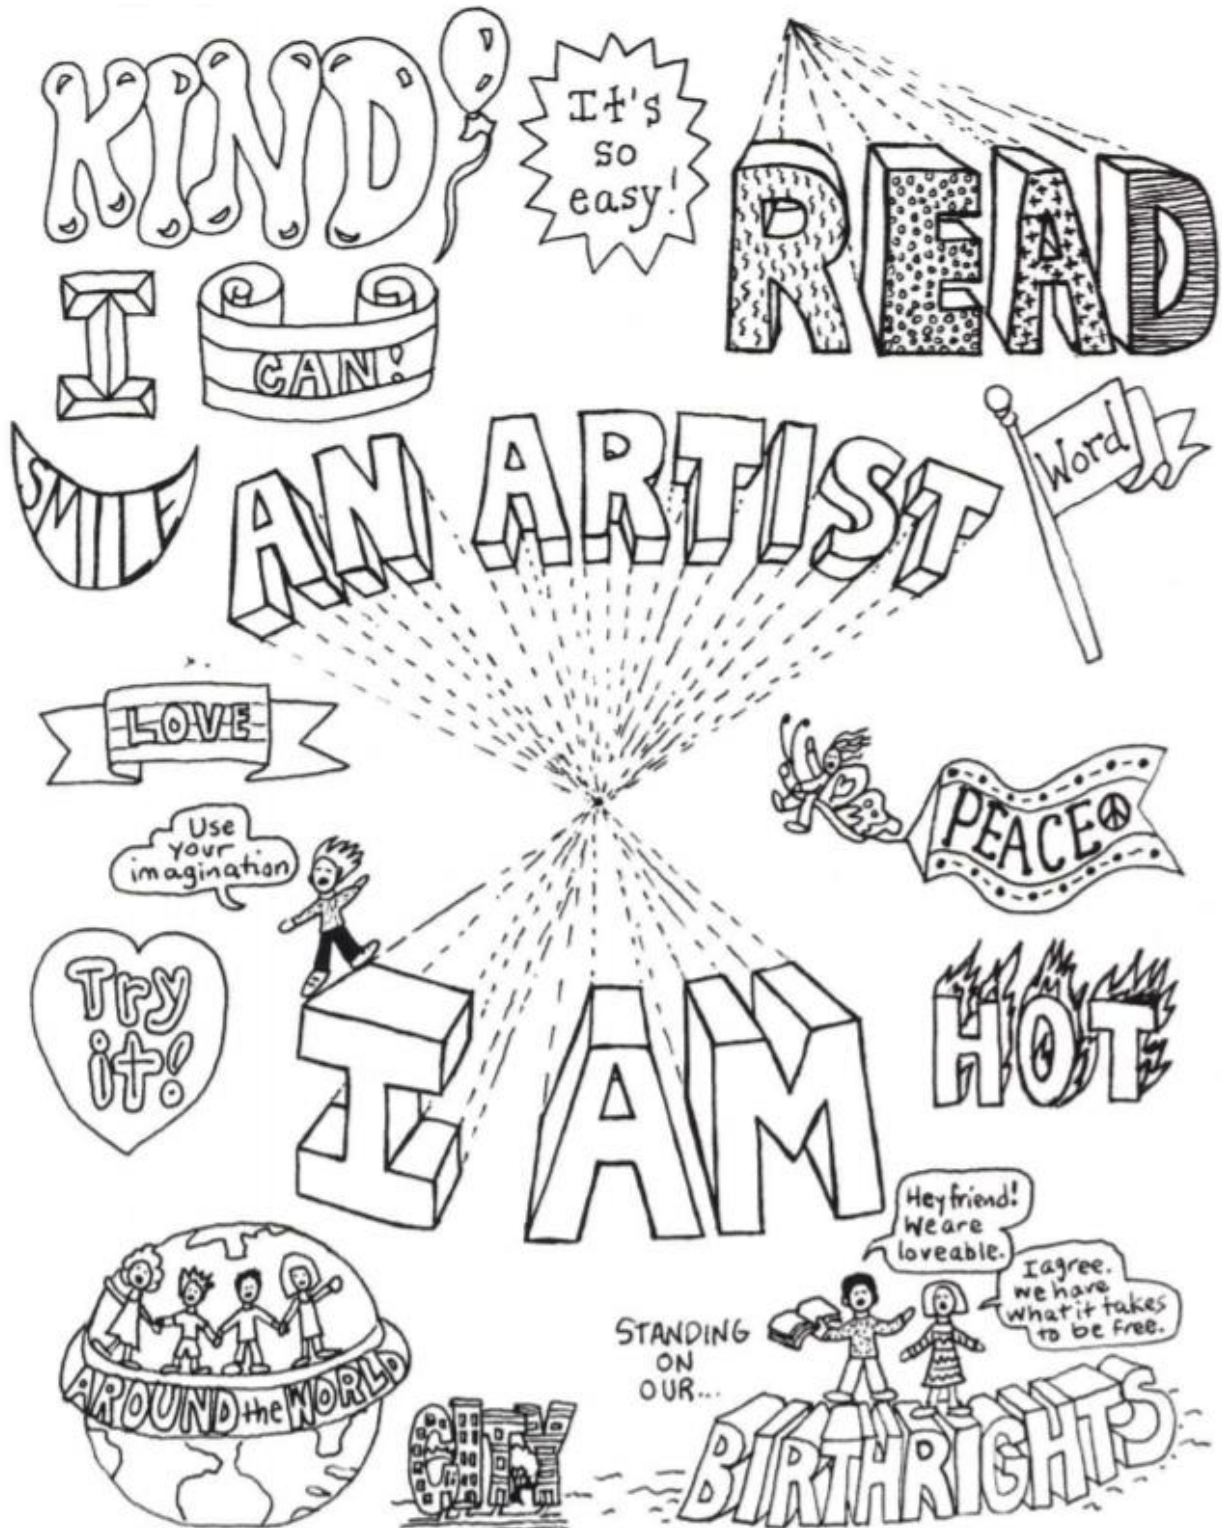 KIND
It's
so
easy!
READ
I
CAN!
SMILE
AN ARTIST
Word
LOVE
PEACE
Use
your
imagination
Try
it!
I AM
HOT
Hey friend!
We are
loveable.
I agree.
we have
what it takes
to be free.
STANDING
ON
OUR...
BIRTHRIGHTS
AROUND the WORLD
CITY